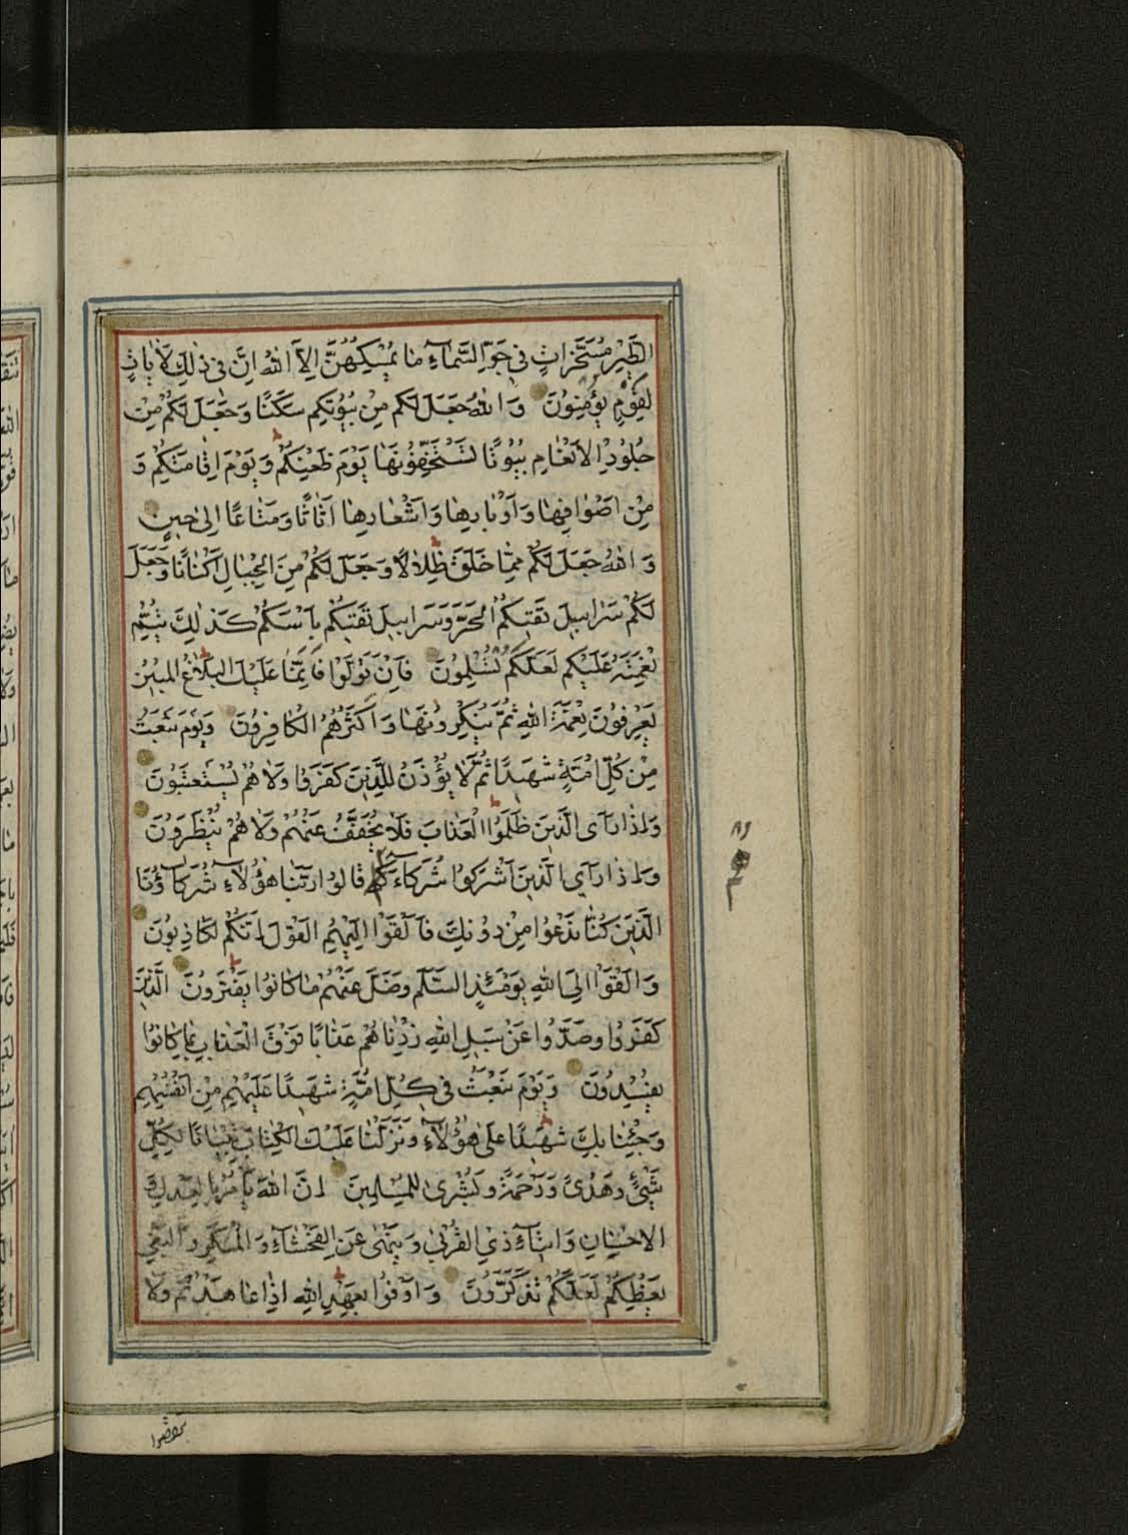 الطَّيْرِ مُسَخَّرَاتٍ فِي جَوِّ السَّمَآءِ مَا يُمْسِكُهُنَّ اِلَّا اللهُ اِنَّ فِي ذٰلِكَ لَاٰيَاتٍ
لِقَوْمٍ يُؤْمِنُونَ وَاللهُ جَعَلَ لَكُمْ مِنْ بُيُوتِكُمْ سَكَنًا وَجَعَلَ لَكُمْ مِنْ
جُلُودِ الْاَنْعَامِ بُيُوتًا تَسْتَخِفُّونَهَا يَوْمَ ظَعْنِكُمْ وَيَوْمَ اِقَامَتِكُمْ وَ
مِنْ اَصْوَافِهَا وَاَوْبَارِهَا وَاَشْعَارِهَا اَثَاثًا وَمَتَاعًا اِلٰى حِينٍ
وَاللهُ جَعَلَ لَكُمْ مِمَّا خَلَقَ ظِلَالًا وَجَعَلَ لَكُمْ مِنَ الْجِبَالِ اَكْنَانًا وَجَعَلَ
لَكُمْ سَرَابِيلَ تَقِيكُمُ الْحَرَّ وَسَرَابِيلَ تَقِيكُمْ بَاْسَكُمْ كَذٰلِكَ يُتِمُّ
نِعْمَتَهُ عَلَيْكُمْ لَعَلَّكُمْ تُسْلِمُونَ فَاِنْ تَوَلَّوْا فَاِنَّمَا عَلَيْكَ الْبَلَاغُ الْمُبِينُ
يَعْرِفُونَ نِعْمَةَ اللهِ ثُمَّ يُنْكِرُونَهَا وَاَكْثَرُهُمُ الْكَافِرُونَ وَيَوْمَ نَبْعَثُ
مِنْ كُلِّ اُمَّةٍ شَهِيدًا ثُمَّ لَا يُؤْذَنُ لِلَّذِينَ كَفَرُوا وَلَا هُمْ يُسْتَعْتَبُونَ
وَاِذَا رَاَى الَّذِينَ ظَلَمُوا الْعَذَابَ فَلَا يُخَفَّفُ عَنْهُمْ وَلَا هُمْ يُنْظَرُونَ
وَاِذَا رَاَى الَّذِينَ اَشْرَكُوا شُرَكَاءَهُمْ قَالُوا رَبَّنَا هٰؤُلَاءِ شُرَكَاؤُنَا
الَّذِينَ كُنَّا نَدْعُوا مِنْ دُونِكَ فَاَلْقَوْا اِلَيْهِمُ الْقَوْلَ اِنَّكُمْ لَكَاذِبُونَ
وَاَلْقَوْا اِلَى اللهِ يَوْمَئِذٍ السَّلَمَ وَضَلَّ عَنْهُمْ مَا كَانُوا يَفْتَرُونَ الَّذِينَ
كَفَرُوا وَصَدُّوا عَنْ سَبِيلِ اللهِ زِدْنَاهُمْ عَذَابًا فَوْقَ الْعَذَابِ بِمَا كَانُوا
يُفْسِدُونَ وَيَوْمَ نَبْعَثُ فِي كُلِّ اُمَّةٍ شَهِيدًا عَلَيْهِمْ مِنْ اَنْفُسِهِمْ
وَجِئْنَا بِكَ شَهِيدًا عَلٰى هٰؤُلَاءِ وَنَزَّلْنَا عَلَيْكَ الْكِتَابَ تِبْيَانًا لِكُلِّ
شَيْءٍ وَهُدًى وَرَحْمَةً وَبُشْرٰى لِلْمُسْلِمِينَ اِنَّ اللهَ يَاْمُرُ بِالْعَدْلِ وَ
الْاِحْسَانِ وَاِيتَآءِ ذِي الْقُرْبٰى وَيَنْهٰى عَنِ الْفَحْشَآءِ وَالْمُنْكَرِ وَالْبَغْيِ
يَعِظُكُمْ لَعَلَّكُمْ تَذَكَّرُونَ وَاَوْفُوا بِعَهْدِ اللهِ اِذَا عَاهَدْتُمْ وَلَا